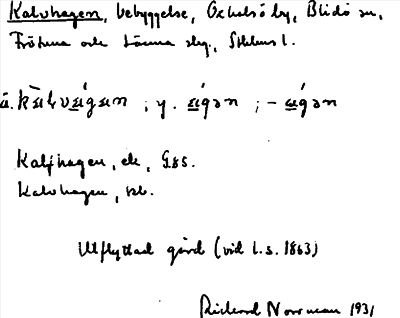 Kalvhagen, bebyggelse, Oxhalsö by, Blidö sn,
Frötuna och Länna skg, Sthlms l.
ä. kalvhagan ; y. agan ; - agan
Kalfhagen, ek, GSS.
Kalvhagen, tbl.
Utflyttad gård (vid l.s. 1863)
Rickard Norrman 1931